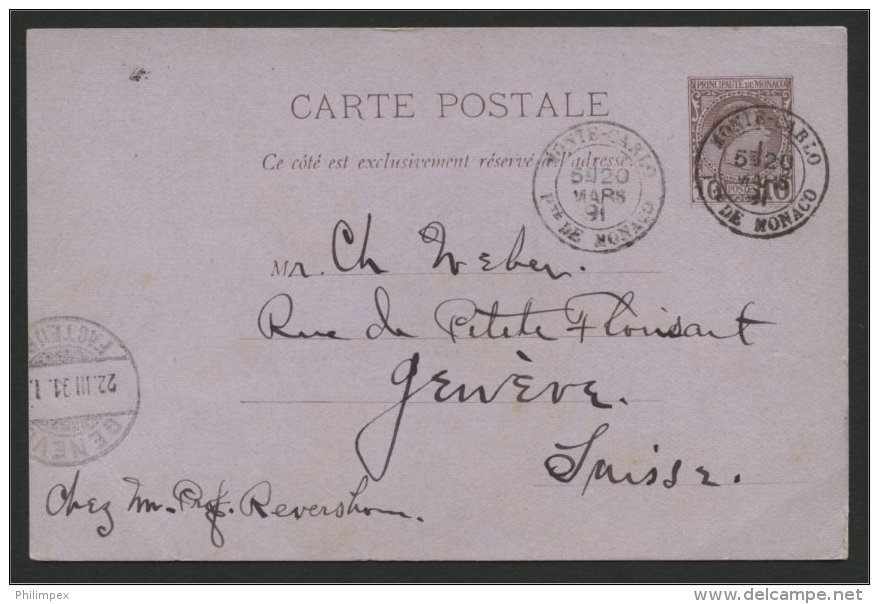 CARTE POSTALE
Ce côté est exclusivement réservé à l'adresse.
PRINCIPAUTÉ DE MONACO
10 POSTES 10
MONTE-CARLO
5E 20
MARS
91
Pté DE MONACO
MONTE-CARLO
5E 20
MARS
91
DE MONACO
Mr. Ch Weber.
Rue de Petite Florissant
Genève.
Suisse.
Chez M. Prof.
FACTEUR
22.III.91.
GENÈV
Philimpex
delcampe.net